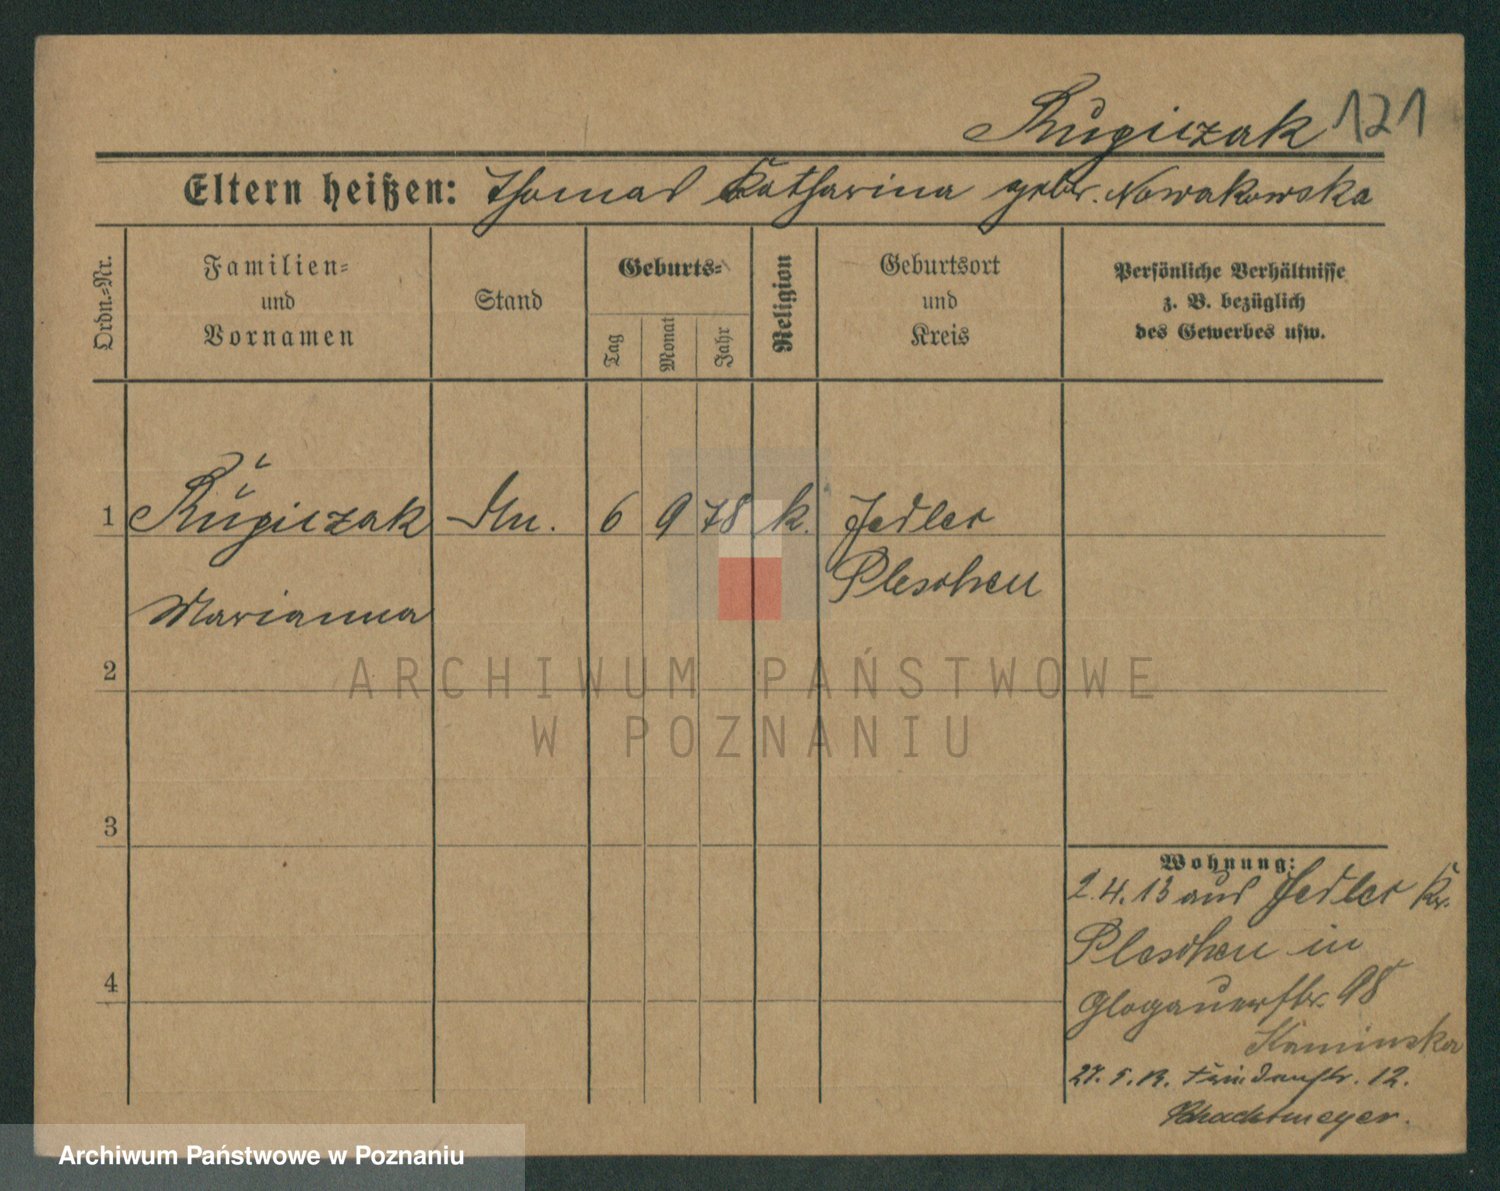 Rugiczak 121
Eltern heißen: Thomas Katharina gebr. Nowakowska
Ordn.=Nr.
Familien=
und
Vornamen
Stand
Geburts=
Tag
Monat
Jahr
Religion
Geburtsort
und
Kreis
Persönliche Verhältnisse
z. B. bezüglich
des Gewerbes usw.
1 Rugiczak 6 9 78 k. Jedlec
Pleschen
Marianna
2
3
4
Wohnung:
2.4.13 aus Jedlec Kr.
Pleschen in
Glogauerstr. 98
Kaminska
27. 5. 13. Friedenstr. 12.
Schachtmeyer.
ARCHIWUM PAŃSTWOWE
W POZNANIU
Archiwum Państwowe w Poznaniu